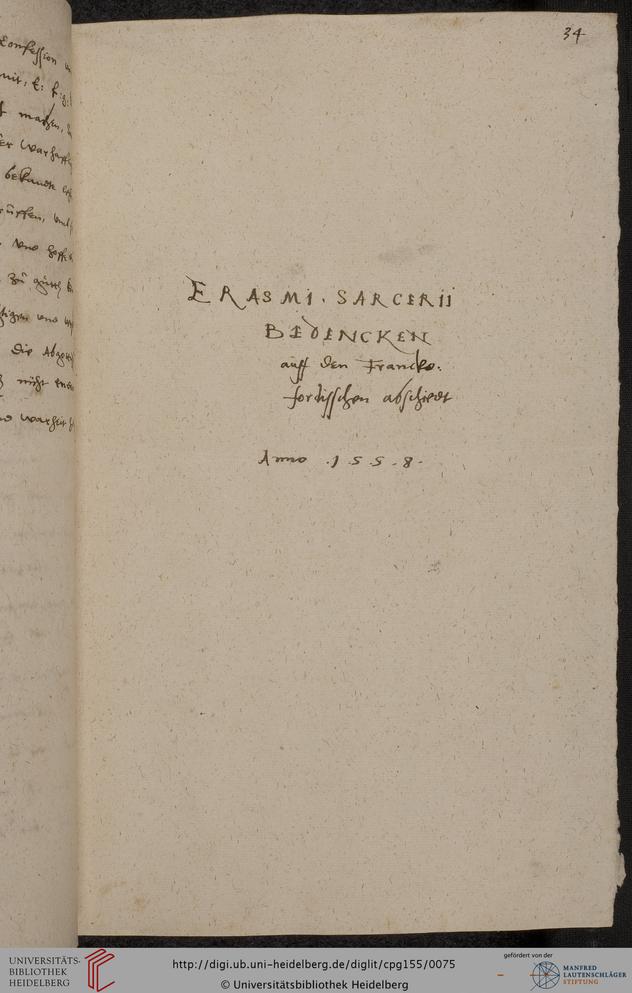 34
Confession
mit, E: f. g.
machen,
der Warhafft
bekandt
vnd
die
nicht
vnd warheit
ERASMI. SARCERII
BEDENCKEN
auff den Francko:
fordisschen abschiedt
Anno .1.5.5.8.
UNIVERSITÄTS-
BIBLIOTHEK
HEIDELBERG
http://digi.ub.uni-heidelberg.de/diglit/cpg155/0075
© Universitätsbibliothek Heidelberg
gefördert von der
MANFRED
LAUTENSCHLÄGER
STIFTUNG